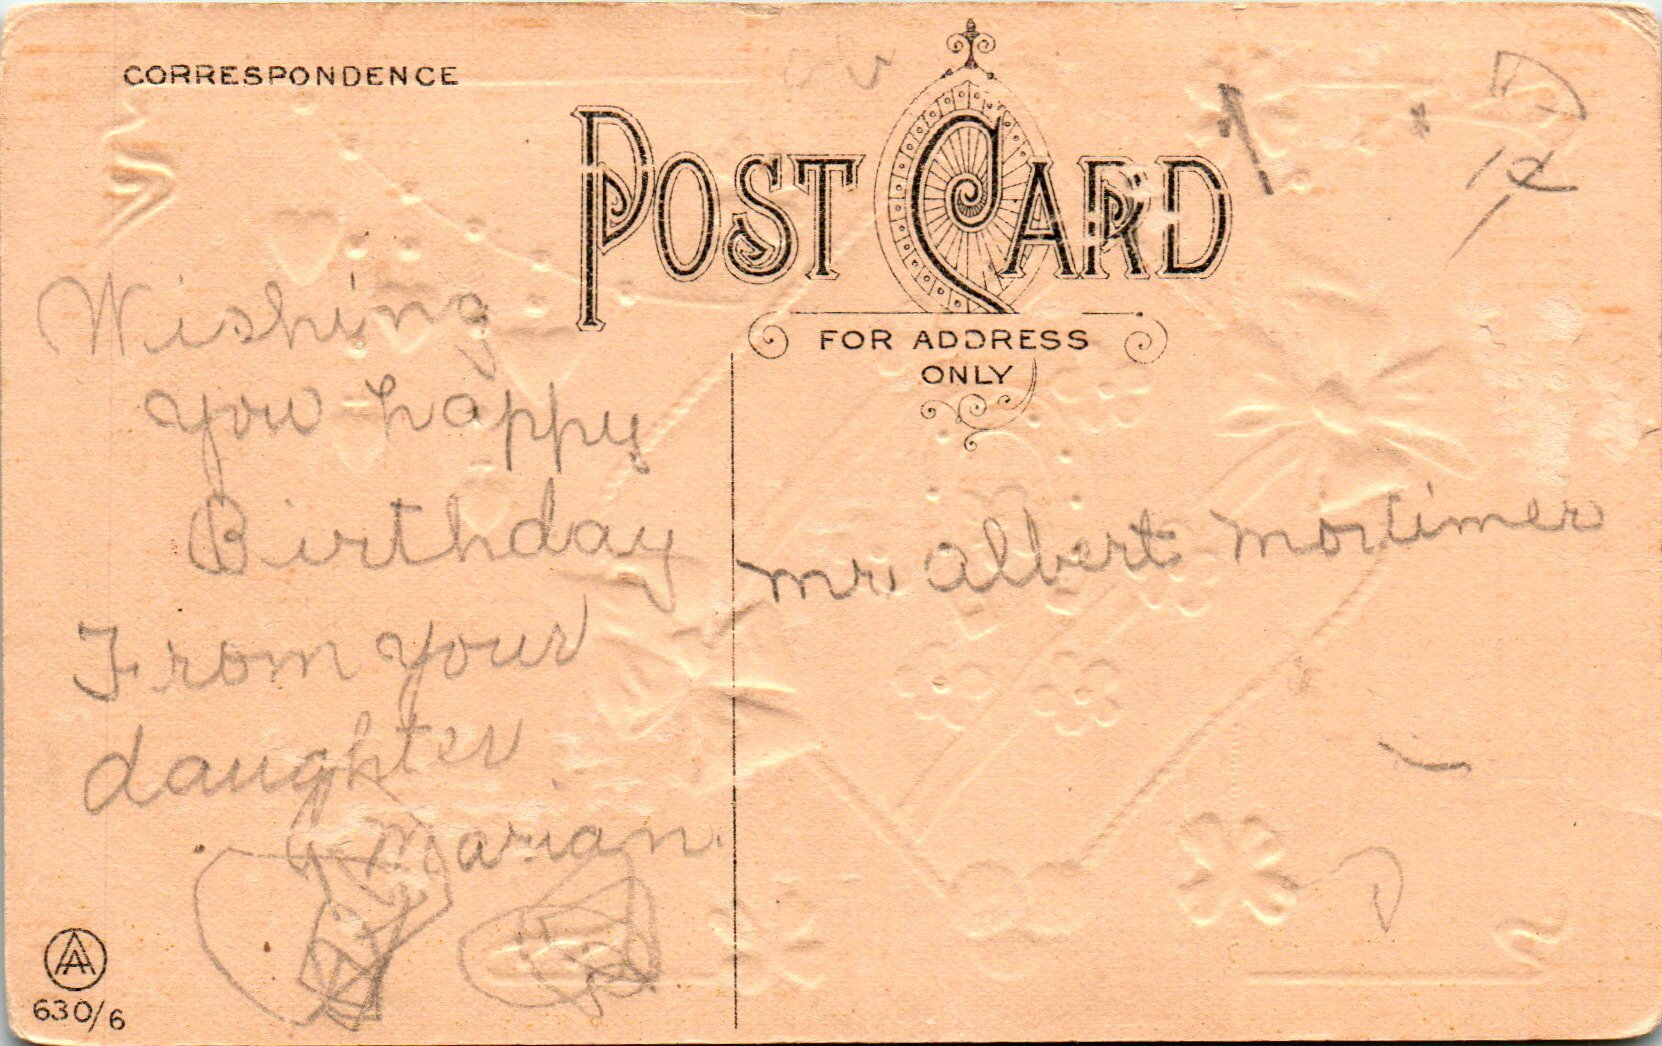 CORRESPONDENCE
POST CARD
FOR ADDRESS
ONLY
Wishing
you happy
Birthday
From your
daughter
Marian.
Mr. Albert Mortimer
AA
630/6